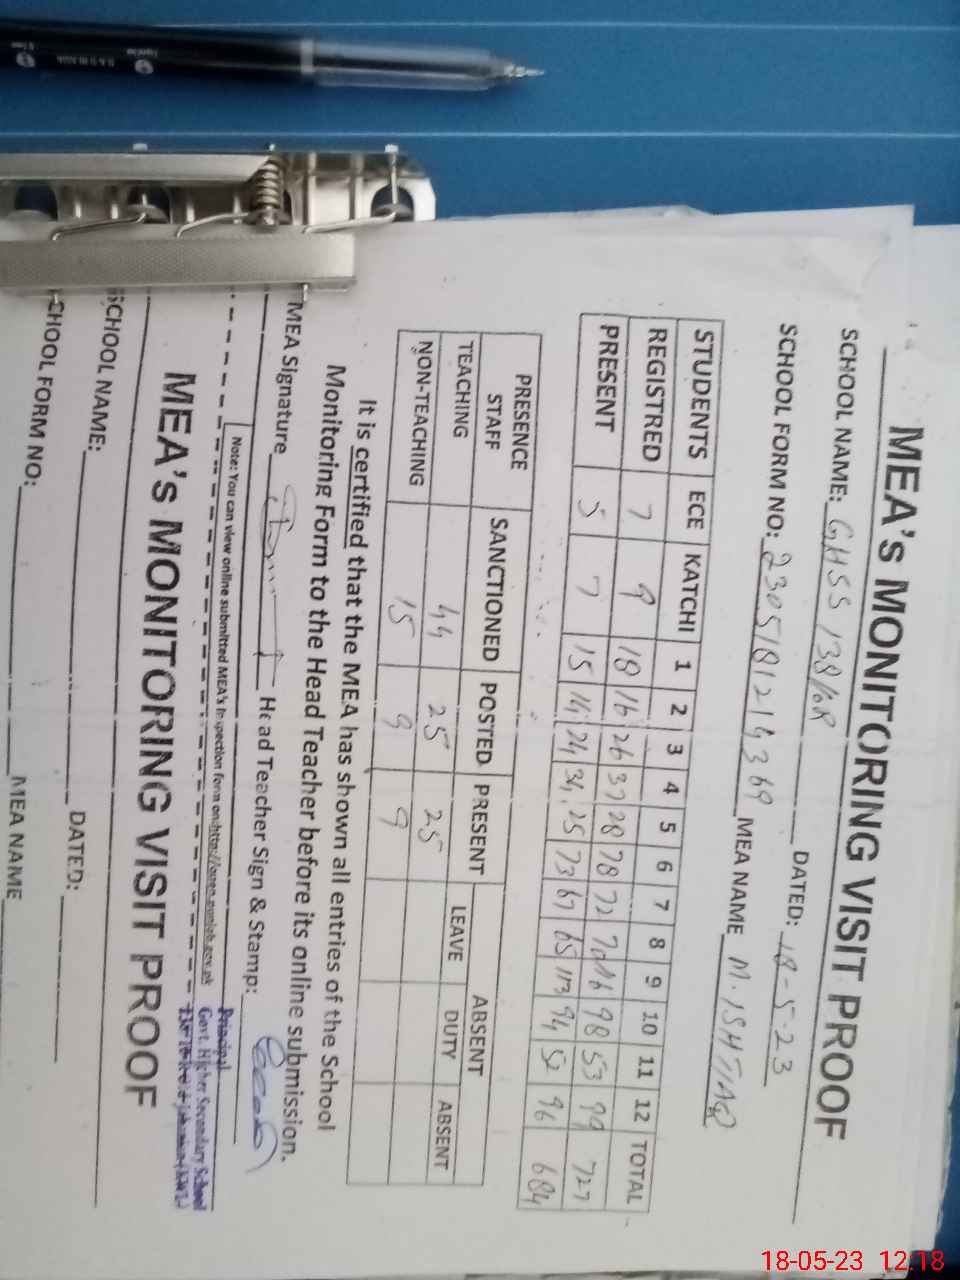 MEA's MONITORING VISIT PROOF
SCHOOL NAME: GHSS 138/6R DATED: 18-5-23
SCHOOL FORM NO: 2305181214369 MEA NAME M. ISHTIAQ
STUDENTS ECE KATCHI 1 2 3 4 5 6 7 8 9 10 11 12 TOTAL
REGISTRED 7 9 18 16 26 37 28 78 72 70 116 98 53 99 727
PRESENT 5 7 15 14 24 34 25 73 67 65 113 94 52 96 684
PRESENCE STAFF SANCTIONED POSTED PRESENT ABSENT
LEAVE DUTY ABSENT
TEACHING 44 25 25
NON-TEACHING 15 9 9
It is certified that the MEA has shown all entries of the School
Monitoring Form to the Head Teacher before its online submission.
MEA Signature Head Teacher Sign & Stamp:
Principal
Govt. Higher Secondary School
Note: You can view online submitted MEA's Inspection form on:http://open.punjab.gov.pk
MEA's MONITORING VISIT PROOF
SCHOOL NAME: DATED:
CHOOL FORM NO: MEA NAME
18-05-23 12:18